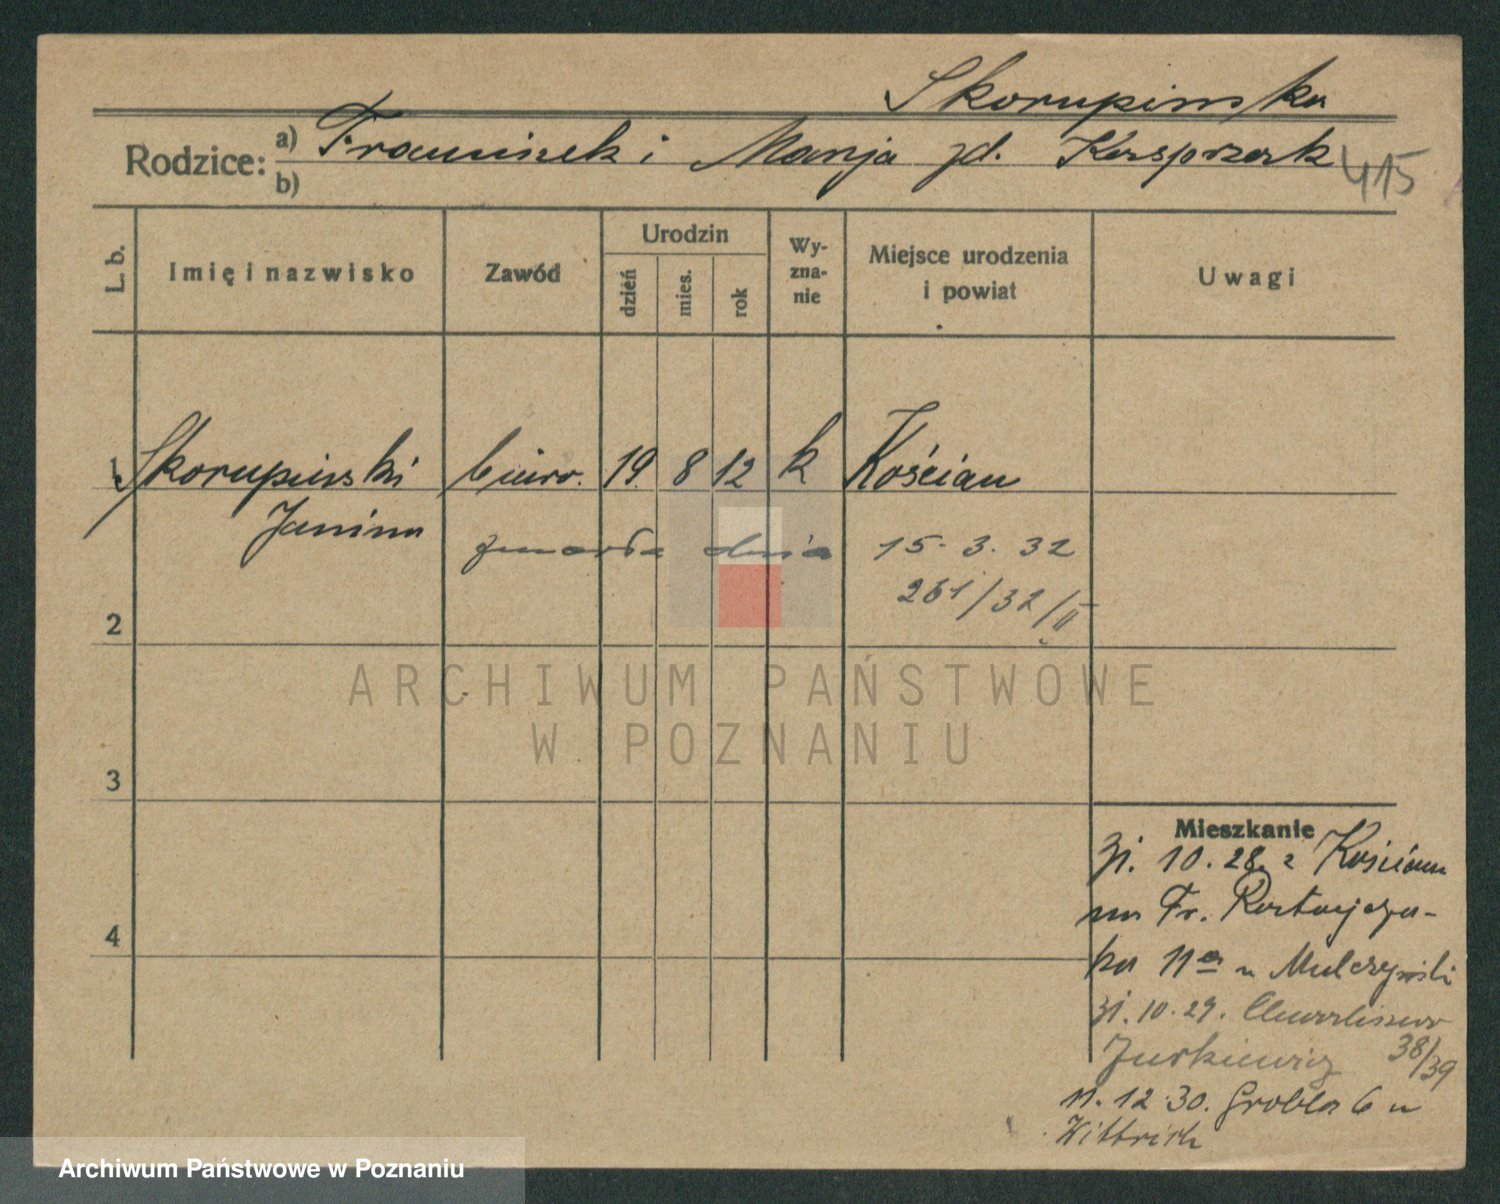 Skorupinska
Rodzice: a) Franciszek i Marja zd. Kasprzak 415
b)
L. b.
Imię i nazwisko
Zawód
Urodzin
dzień
mies.
rok
Wy-
zna-
nie
Miejsce urodzenia
i powiat
Uwagi
1 Skorupinski biuro. 19. 8 12 k Kościan
Janina
zmarła dnia 15. 3. 32
261/32/II
2
3
4
ARCHIWUM PAŃSTWOWE
W POZNANIU
Mieszkanie
31. 10. 28 z Kościan
na Fr. Ratajcza-
ka 11a u
31. 10. 29. Chwaliszewo
Jurkiewicz 38/39
11. 12. 30. Grobla 6 u
Wittrich
Archiwum Państwowe w Poznaniu